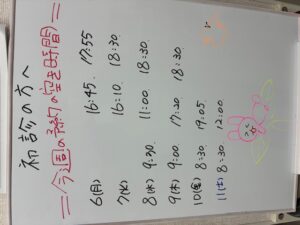 初診の方へ
=今週の予約の空き時間=
6(月) 16:45. 17:55
7(火) 16:10. 18:30
8(水) 9:00. 11:00 18:30.
9(木) 9:00 17:20 18:30
10(金) 8:30 19:05
11(土) 8:30 12:00